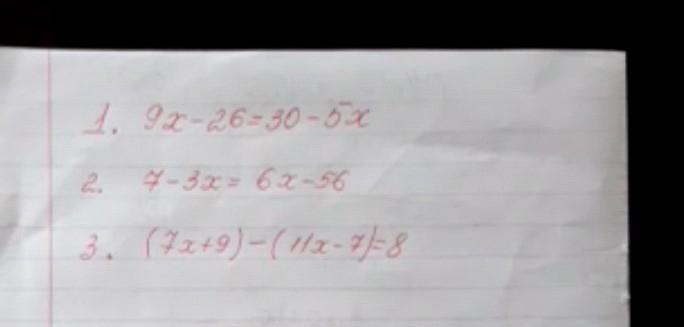 1. 9x-26=30-5x
2. 7-3x= 6x-56
3. (7x+9)-(11x-7)=8